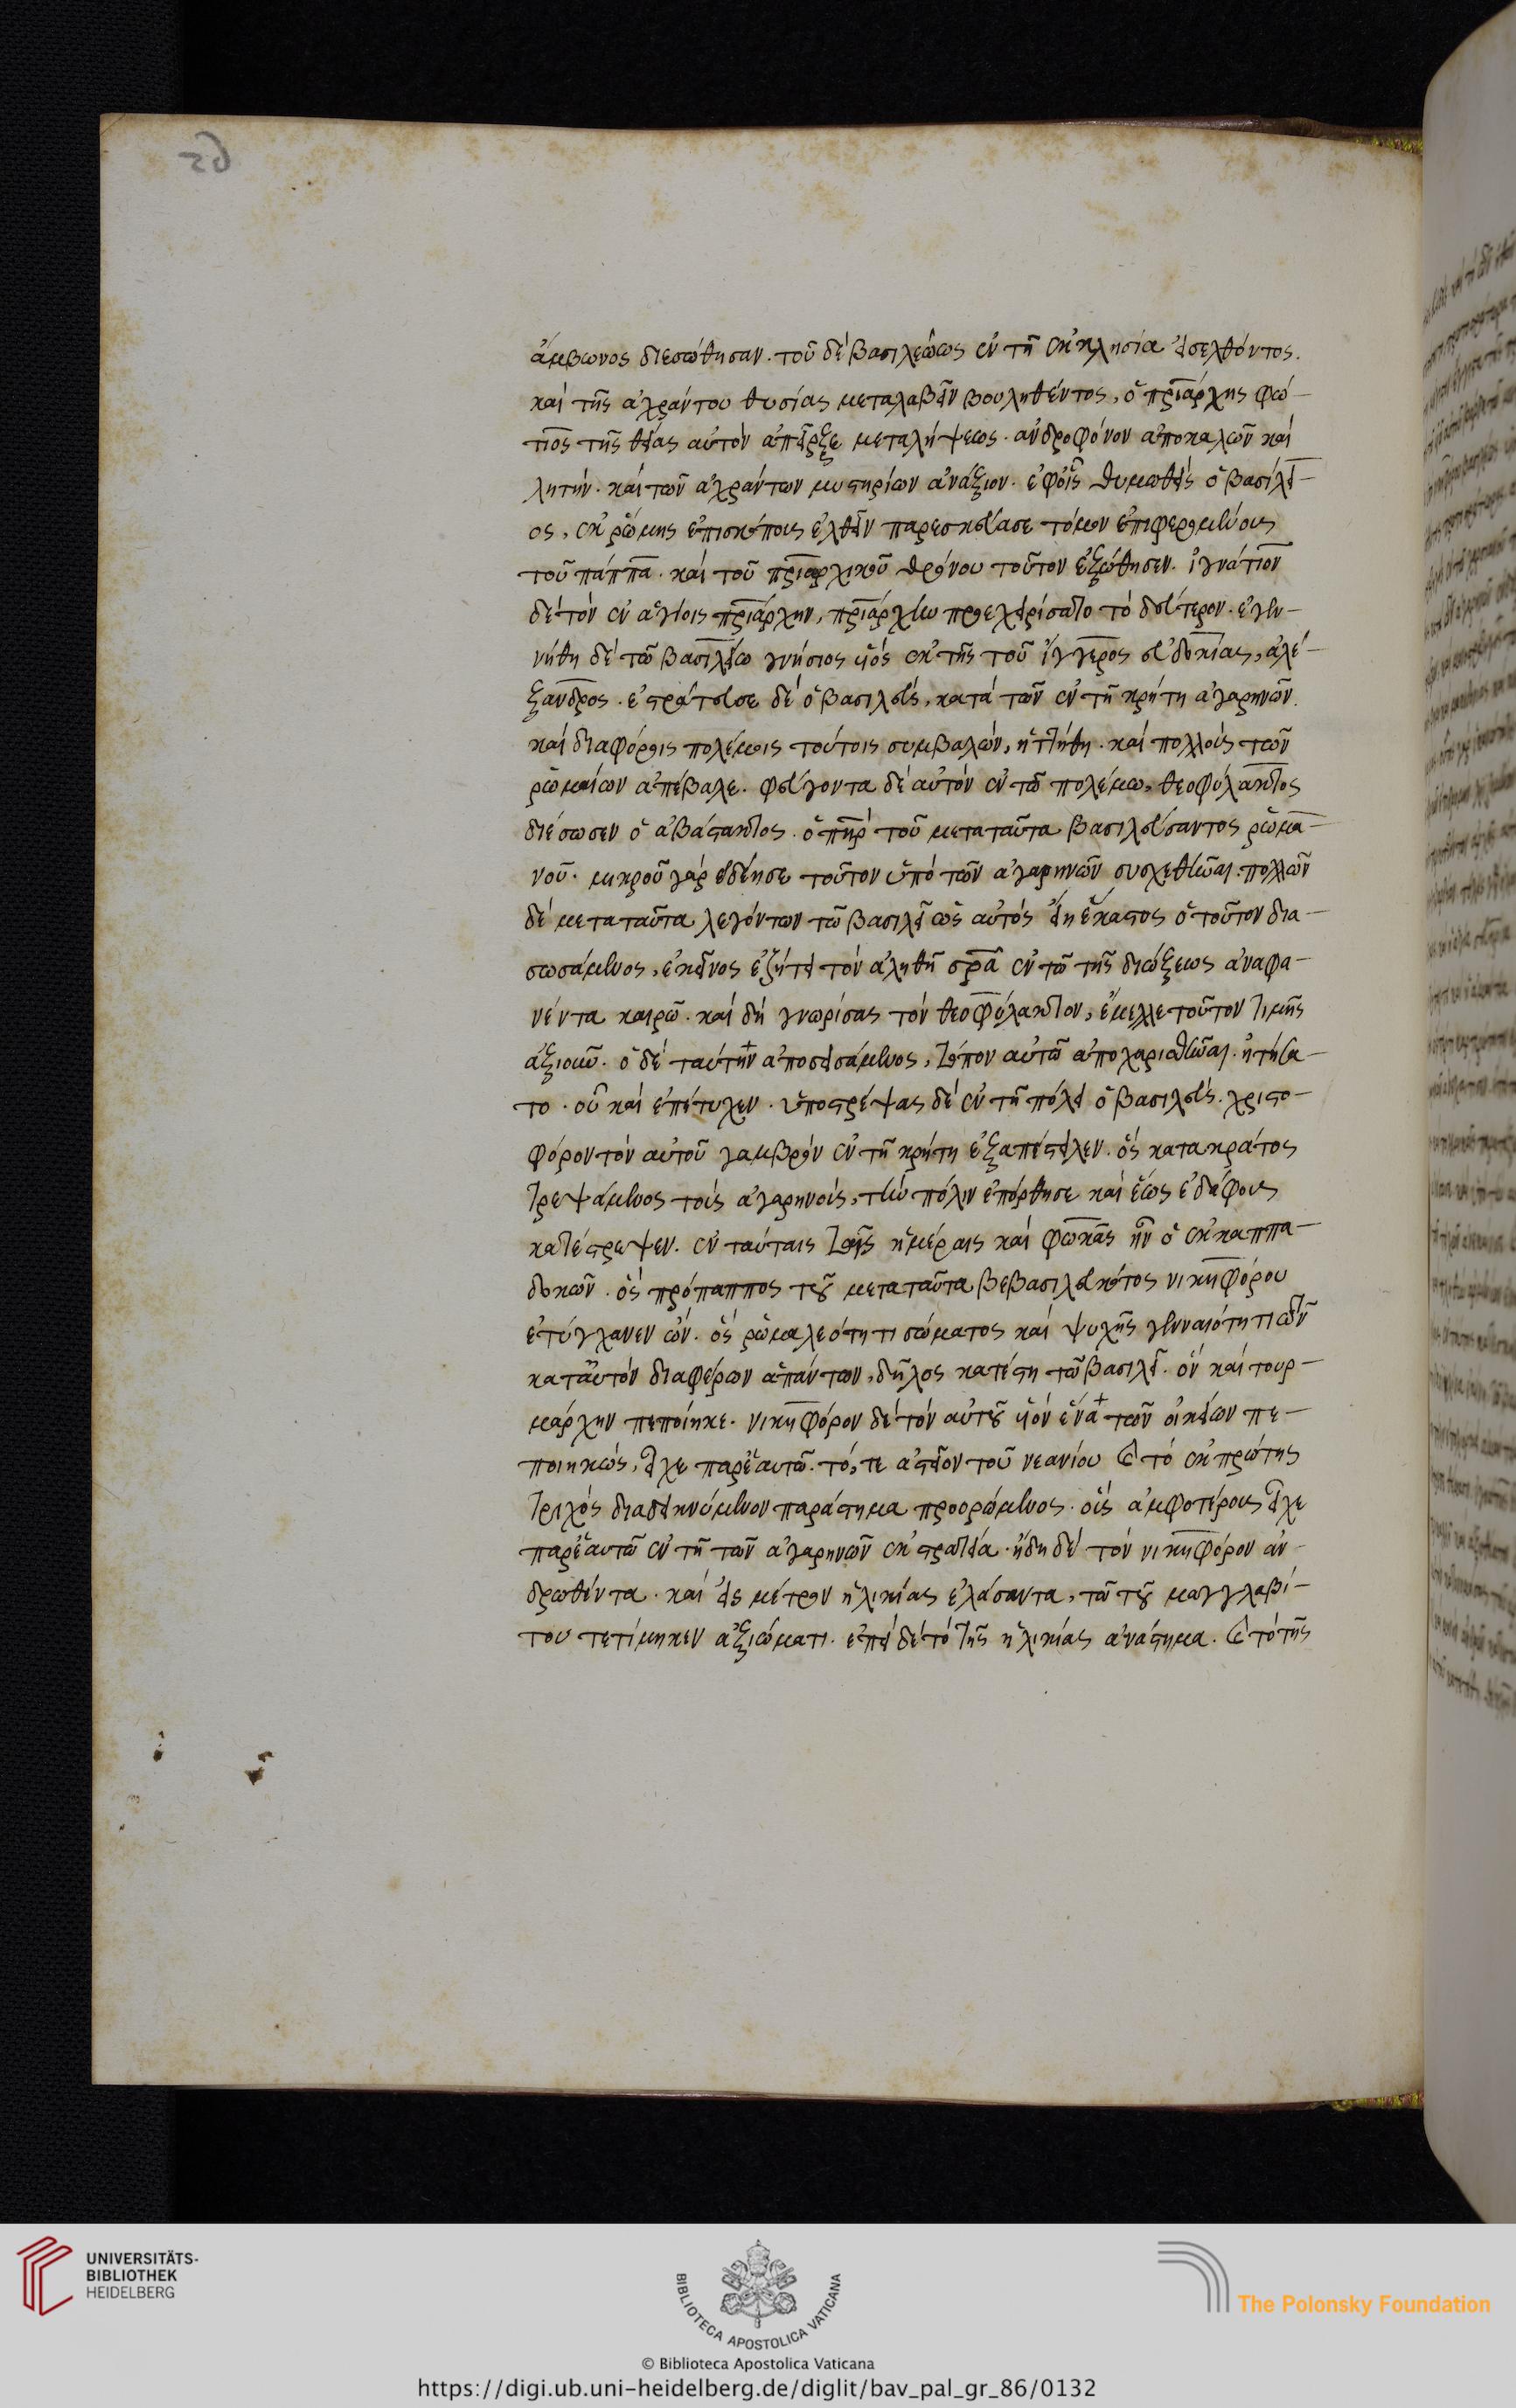 ἄμβωνος διεσώθησαν. τοῦ δὲ βασιλέως ἐν τῆ ἐκκλησία εἰσελθόντος.
καὶ τῆς ἀχράντου θυσίας μεταλαβεῖν βουληθέντος, ὁ πριάρχης φώ-
τιος τῆς θείας αὐτὸν ἀπεῖρξε μεταλήψεως. ἀνδροφόνον ἀποκαλῶν καὶ
λητήν. καὶ τῶν ἀχράντων μυστηρίων ἀνάξιον. ἐφοἷς θυμωθεὶς ὁ βασίλει-
ος, ἐκ ῥώμης ἐπισκόπους ἐλθεῖν παρεσκεύασε τόμον ἐπιφερομένους
τοῦ πάππα. καὶ τοῦ πριαρχικοῦ θρόνου τοῦτον ἐξώθησεν. ἰγνάτιον
δὲ τὸν ἐν ἁγίοις πριάρχην, πριάρχην προεχειρίσατο τὸ δεύτερον. ἐγεν-
νήθη δὲ τῶ βασιλείω γνήσιος υἱὸς ἐκ τῆς τοῦ ἴγγερος εὐδοκίας, ἀλέ-
ξανδρος. ἐστράτευσε δὲ ὁ βασιλεὺς, κατὰ τῶν ἐν τῆ κρήτη ἀγαρηνῶν.
καὶ διαφόροις πολέμοις τούτοις συμβαλὼν, ἡττήθη. καὶ πολλοὺς τῶν
ῥωμαίων ἀπέβαλε. φεύγοντα δὲ αὐτὸν ἐν τῶ πολέμω, θεοφύλακτος
διέσωσεν ὁ ἀβάστακτος. ὁ πηρ τοῦ μεταταῦτα βασιλεύσαντος ῥωμα-
νοῦ. μικροῦ γὰρ ἐδέησε τοῦτον ὑπὸ τῶν ἀγαρηνῶν συσχεθῆναι. πολλῶν
δὲ μεταταῦτα λεγόντων τῶ βασιλεῖ ὡς αὐτὸς εἴη ἕκαστος ὁ τοῦτον δια-
σωσάμενος, ἐκεῖνος ἐζήτει τὸν ἀληθῆ σρα ἐν τῶ τῆς διώξεως ἀναφα-
νέντα καιρῶ. καὶ δὴ γνωρίσας τὸν θεοφύλακτον, ἔμελλε τοῦτον τιμῆς
ἀξιοῦν. ὁ δὲ ταύτην ἀποσεισάμενος, τόπον αὐτῶ ἀποχαρισθῆναι. ἠτήσα-
το. οὗ καὶ ἐπέτυχεν. ὑποστρέψας δὲ ἐν τῆ πόλει ὁ βασιλεὺς. χριστο-
φόρον τὸν αὐτοῦ γαμβρὸν ἐν τῆ κρήτη ἐξαπέστειλεν. ὃς κατακράτος
τρεψάμενος τοὺς ἀγαρηνοὺς, τὴν πόλιν ἐπόρθησε καὶ ἕως ἐδάφους
κατέστρεψεν. ἐν ταύταις ταῖς ἡμέραις καὶ φωκᾶς ἦν ὁ ἐκ καππα-
δοκῶν. ὃς πρόπαππος τοῦ μεταταῦτα βεβασιλευκότος νικηφόρου
ἐτύγχανεν ὤν. ὃς ῥωμαλεότητι σώματος καὶ ψυχῆς γενναιότητι τῶν
καταὐτὸν διαφέρων ἁπάντων, δῆλος κατέστη τῶ βασιλεῖ. ὃν καὶ τουρ-
μάρχην πεποίηκε. νικηφόρον δὲ τὸν αὐτοῦ υἱὸν ἕνα τῶν οἰκείων πε-
ποιηκὼς, εἶχε παρἑαυτῶ. τό, τε ἀστεῖον τοῦ νεανίου καὶ τὸ ἐκ πρώτης
τριχὸς διαδεικνύμενον παράστημα προορώμενος. οὓς ἀμφοτέρους εἶχε
παρἑαυτῶ ἐν τῆ τῶν ἀγαρηνῶν ἐκστρατεία. ἤδη δὲ τὸν νικηφόρον ἀν-
δρωθέντα. καὶ εἰς μέτρον ἡλικίας ἐλάσαντα, τῶ τοῦ μαγγλαβί-
του τετίμηκεν ἀξιώματι. ἐπεὶ δὲ τὸ τῆς ἡλικίας ἀνάστημα. καὶ τὸ τῆς
UNIVERSITÄTS-
BIBLIOTHEK
HEIDELBERG
BIBLIOTECA APOSTOLICA VATICANA
The Polonsky Foundation
© Biblioteca Apostolica Vaticana
https://digi.ub.uni-heidelberg.de/diglit/bav_pal_gr_86/0132